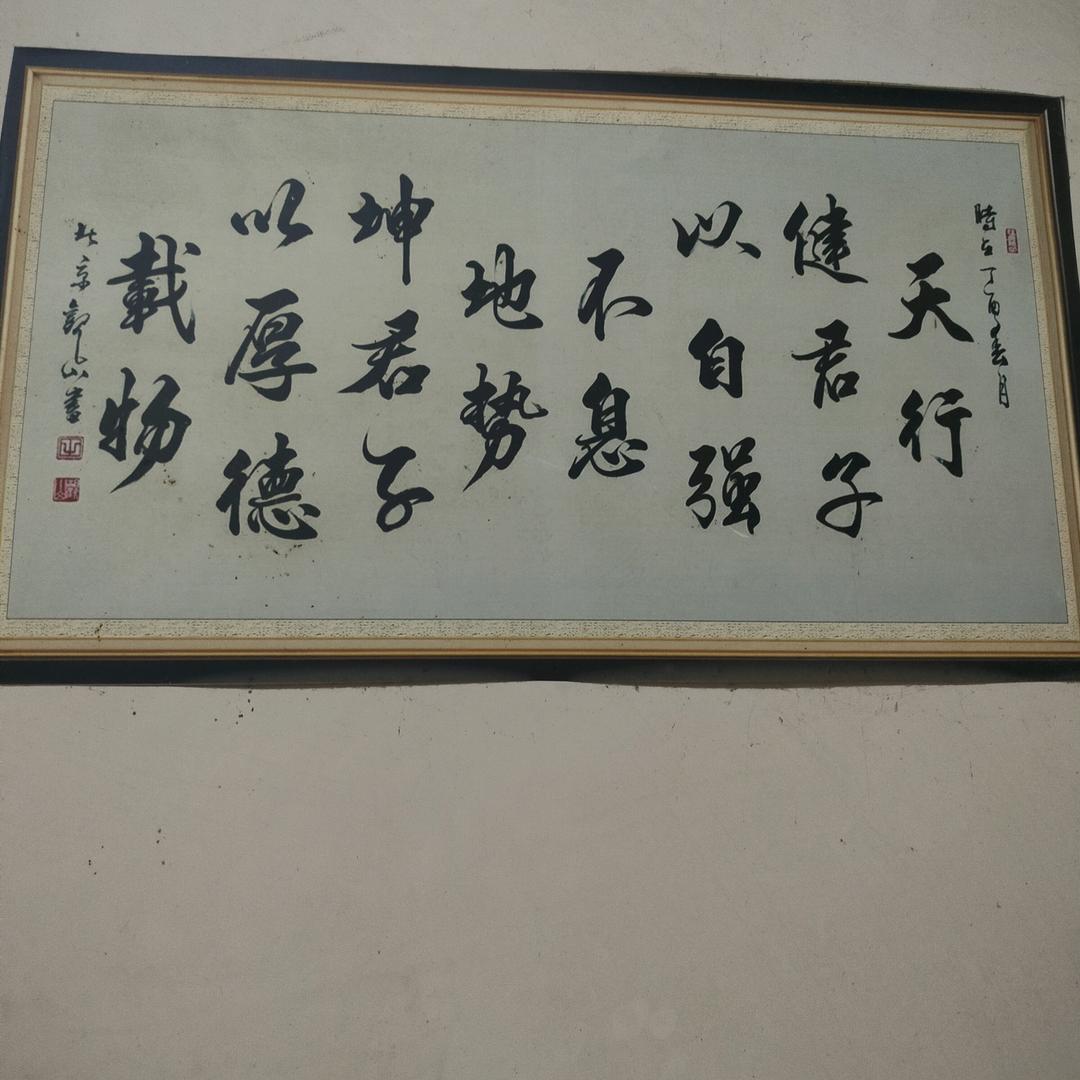 時在丁酉春月
天行
健君子
以自强
不息
地势
坤君子
以厚德
載物
北京觀山書